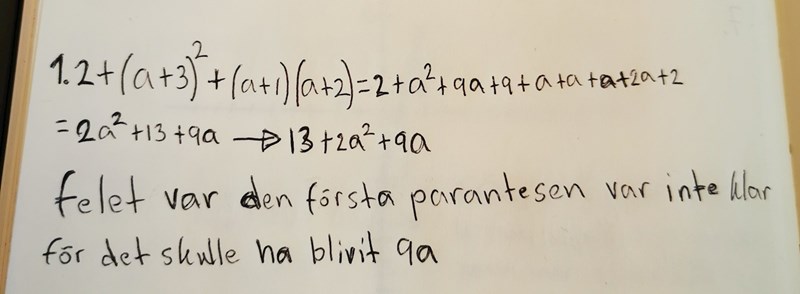 1. 2+(a+3)²+(a+1)(a+2)=2+a²+9a+9+a+a+a+2a+2
=2a²+13+9a → 13+2a²+9a
felet var den första parantesen var inte klar
för det skulle ha blivit 9a